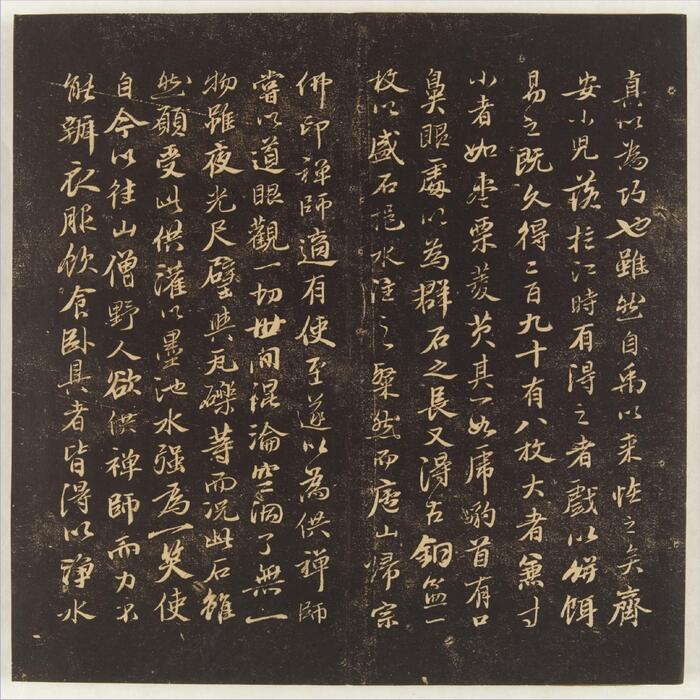 真以為巧也雖然自禹以来恠之矣齊
安小兒浴於江時有得之者戲以餅餌
易之既久得二百九十有八枚大者兼寸
小者如棗栗菱芡其一如虎豹首有口
鼻眼處以為群石之長又得古銅盆一
枚以盛石挹水注之粲然而廬山歸宗
佛印禪師適有使至遂以為供禪師
嘗以道眼觀一切世間混淪空洞了無一
物雖夜光尺璧與瓦礫等而况此石雖
然願受此供灌以墨池水强為一笑使
自今以往山僧野人欲供禪師而力不
能辦衣服飲食卧具者皆得以淨水